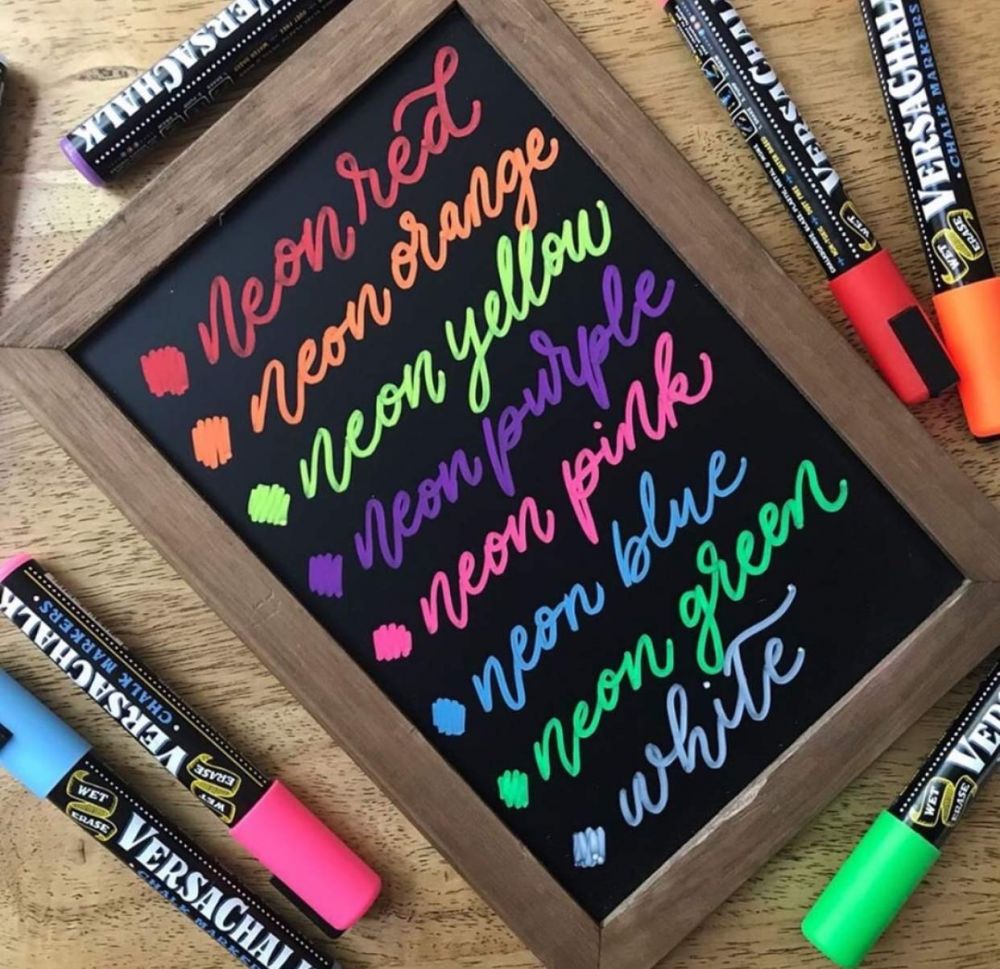 neon red
neon orange
neon yellow
neon purple
neon pink
neon blue
neon green
white
VERSACHALK
VERSACHALK
WET
ERASE
VERSACHALK
CHALK MARKERS.
WET
ERASE
VERSACHALK
CHALK MARKERS.
WET
ERASE
VERSACHALK
CHALK MARKERS
WET
ERASE
WET
ERASE